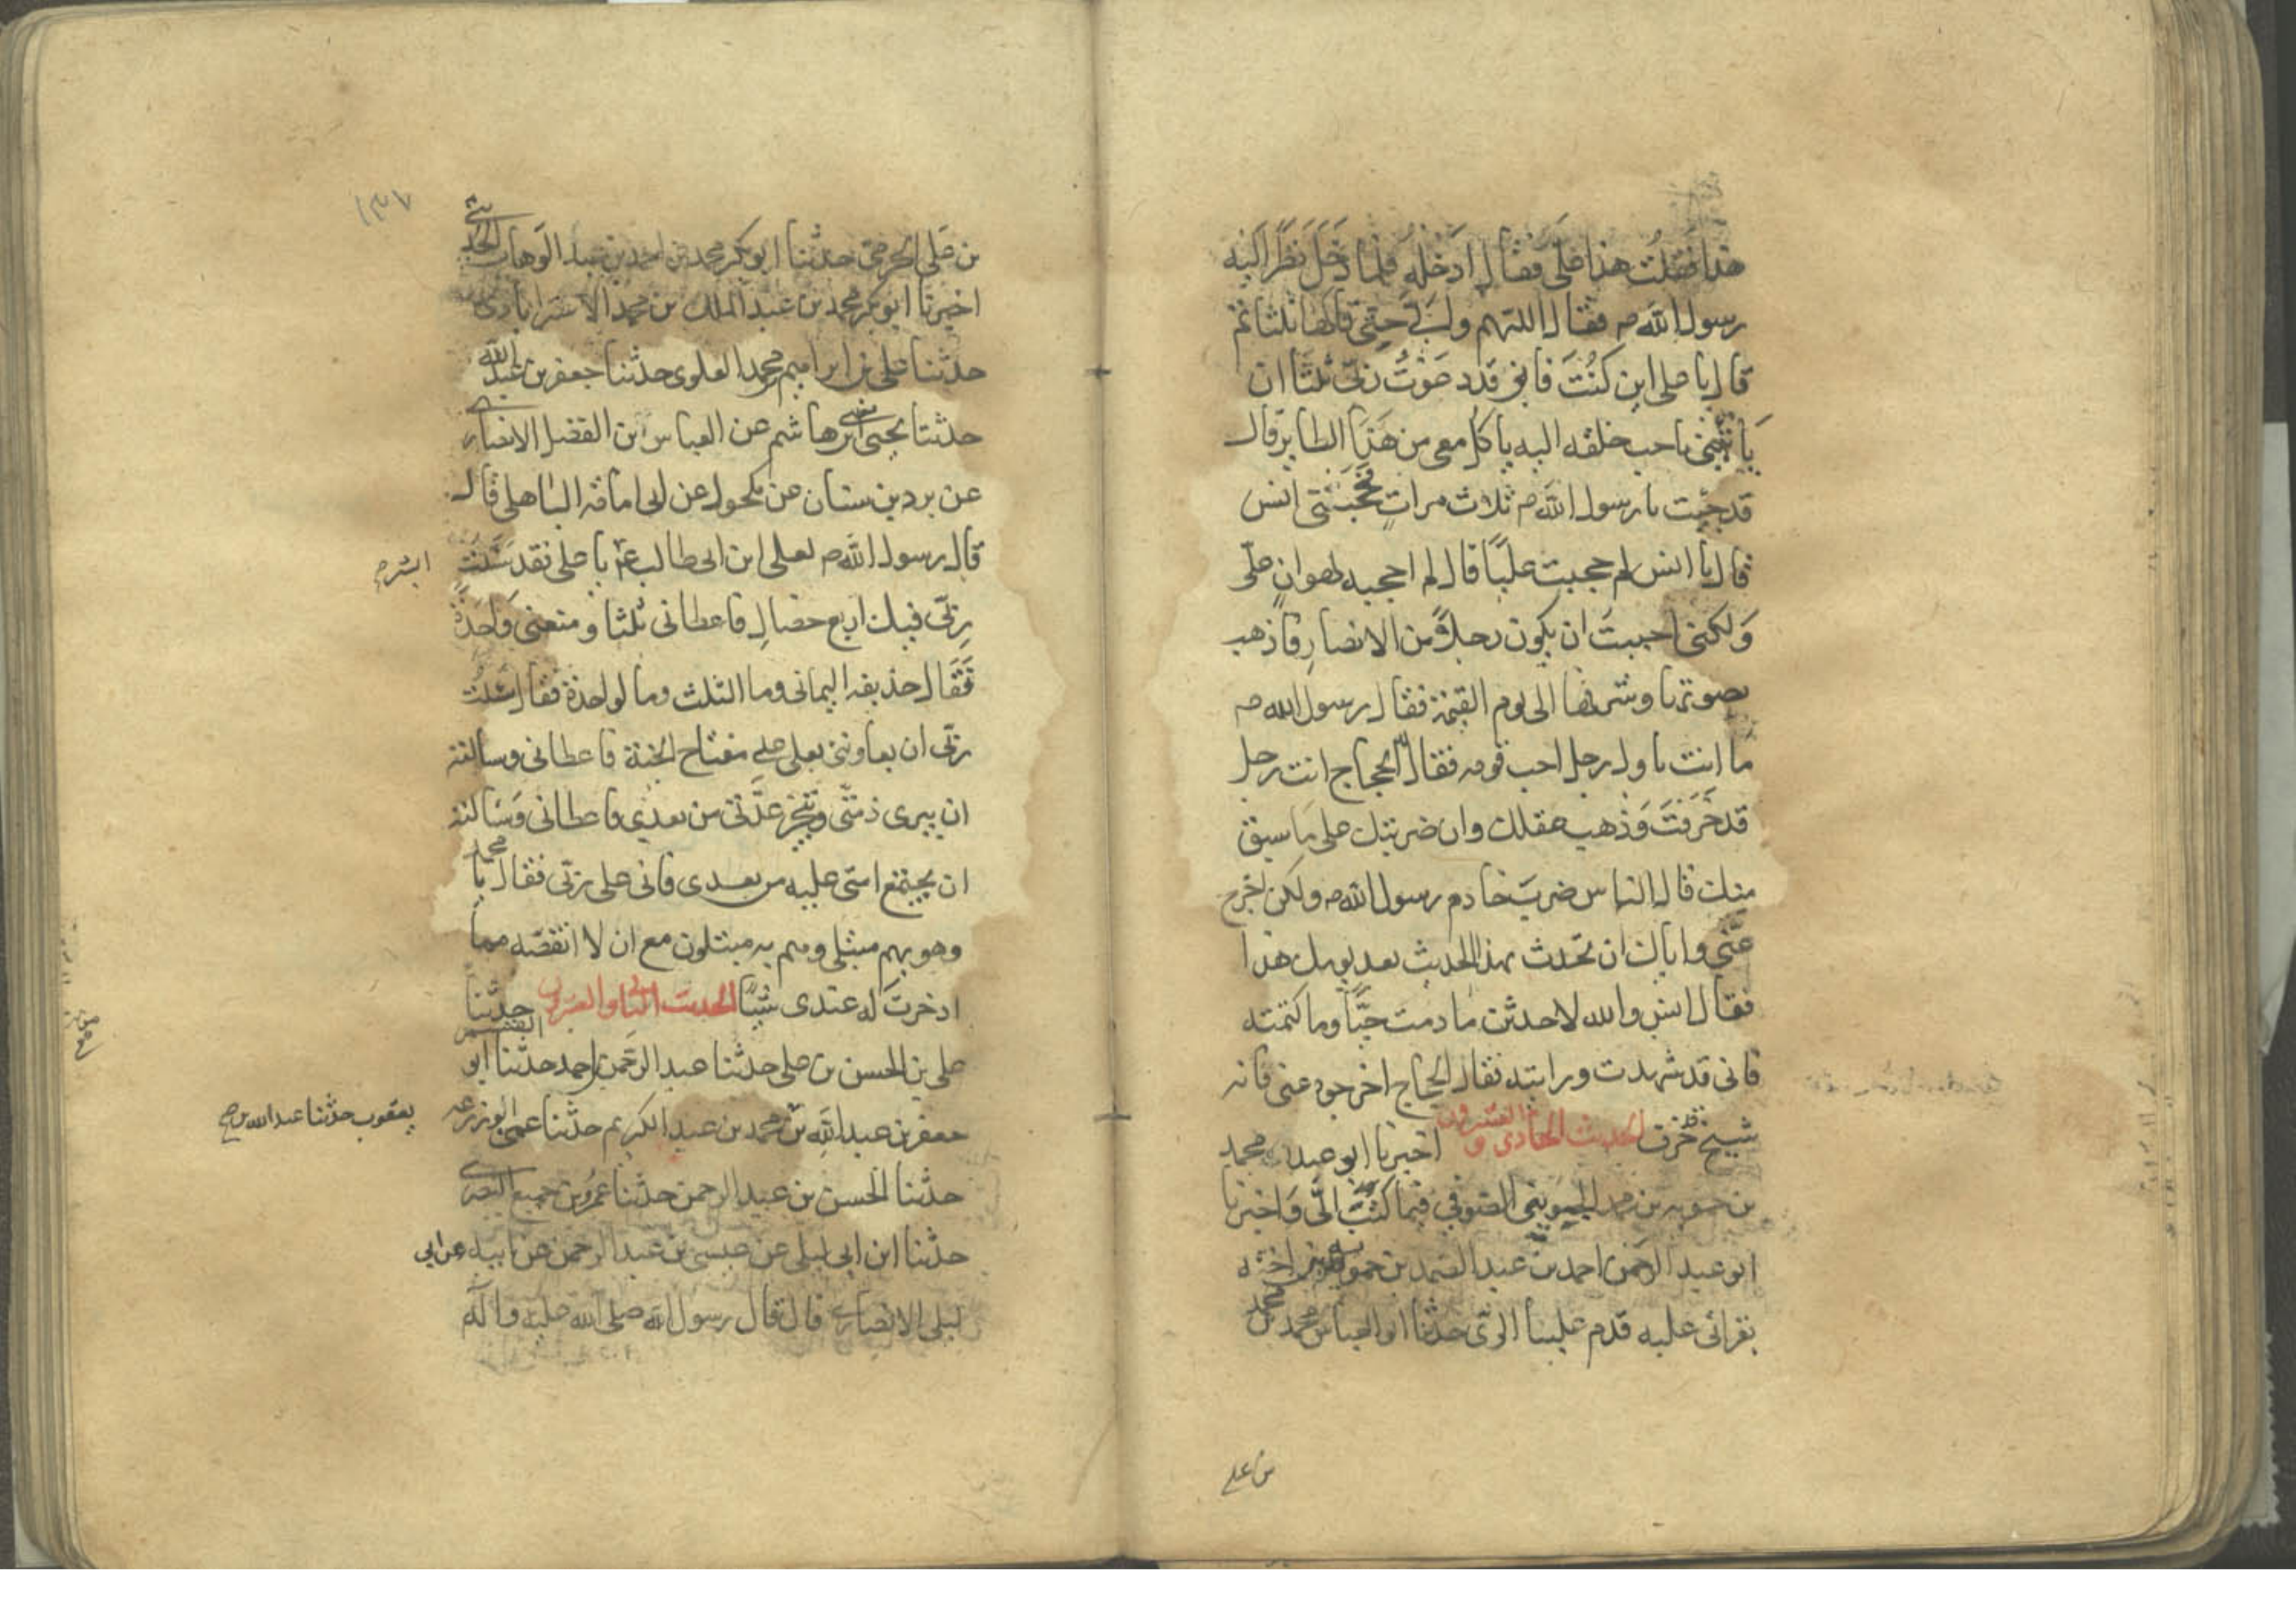 هذا فقلت هذا علي فقال ادخله فلما دخل نظر اليه
رسول الله ص فقال اللهم والي حتى قالها ثلثا ثم
قال يا علي اين كنت فاني قد دعوت ربي ثلثا ان
ياتيني باحب خلقه اليه ياكل معي من هذا الطاير قال
قد جئت يا رسول الله ص ثلاث مرات فحجبني انس
قال يا انس لم حجبت عليا قال لم احجبه لهوان علي
ولكني احببت ان يكون رجلا من الانصار فاذهب
بصوتها وشرفها الى يوم القيمة فقال رسول الله ص
ما انت باول رجل احب قومه فقال الحجاج انت رجل
قد خرفت وذهب عقلك وان ضربتك على ما سبق
منك قال الناس ضرب خادم رسول الله ص ولكن اخرج
عني واياك ان تحدث بهذا الحديث بعد يومك هذا
فقال انس والله لاحدثن ما دمت حيا وما كتمته
فاني قد شهدت ورايته فقال الحجاج اخرجوه عني فانه
شيخ خرف الحديث الحادي والعشرون اخبرنا ابو عبد الله محمد
بن حمويه بن محمد الجويني الصوفي فيما كتب الي واخبرنا
ابو عبد الرحمن احمد بن عبد الصمد بن حمويه
بقرائي عليه قدم علينا الري حدثنا ابو العباس محمد بن محمد
من علي
١٣٧
من علي الحرمي حدثنا ابو بكر محمد بن احمد بن عبد الوهاب
اخبرنا ابو بكر محمد بن عبد الملك بن محمد الاسترابادي
حدثنا علي بن ابراهيم محمد العلوي حدثنا جعفر بن عبد الله
حدثنا يحيى بن هاشم عن العباس بن الفضل الانصاري
عن برد بن سنان عن مكحول عن ابي امامة الباهلي قال
قال رسول الله ص لعلي ابن ابي طالب ع يا علي لقد سئلت
ربي فيك اربع خصال فاعطاني ثلثا ومنعني واحدة
فقال حذيفه اليماني وما الثلث وما لواحدة فقال سئلت
ربي ان يعاونني بعلي على مفتاح الجنة فاعطاني وسالته
ان يبرى ذمتي وينجز عدتي من بعدي فاعطاني وسالته
ان يجتمع امتي عليه من بعدي فاني على ربي فقال يا محمد
وهو بهم مبتلى وهم به مبتلون مع ان لا انقصه مما
ادخرت له عندى شيئا الحديث الثاني والعشرون حدثنا
علي بن الحسن بن علي حدثنا عبد الرحمن احمد حدثنا ابو القسم
جعفر بن عبد الله بن محمد بن عبد الكريم حدثنا عمي ابو زرعه
يعقوب حدثنا عبد الله بن
حدثنا الحسن بن عبد الرحمن حدثنا عمرو بن جميع البصري
حدثنا ابن ابي ليلى عن عيسى بن عبد الرحمن عن ابيه عن ابي
ليلى الانصاري قال قال رسول الله صلى الله عليه وآله